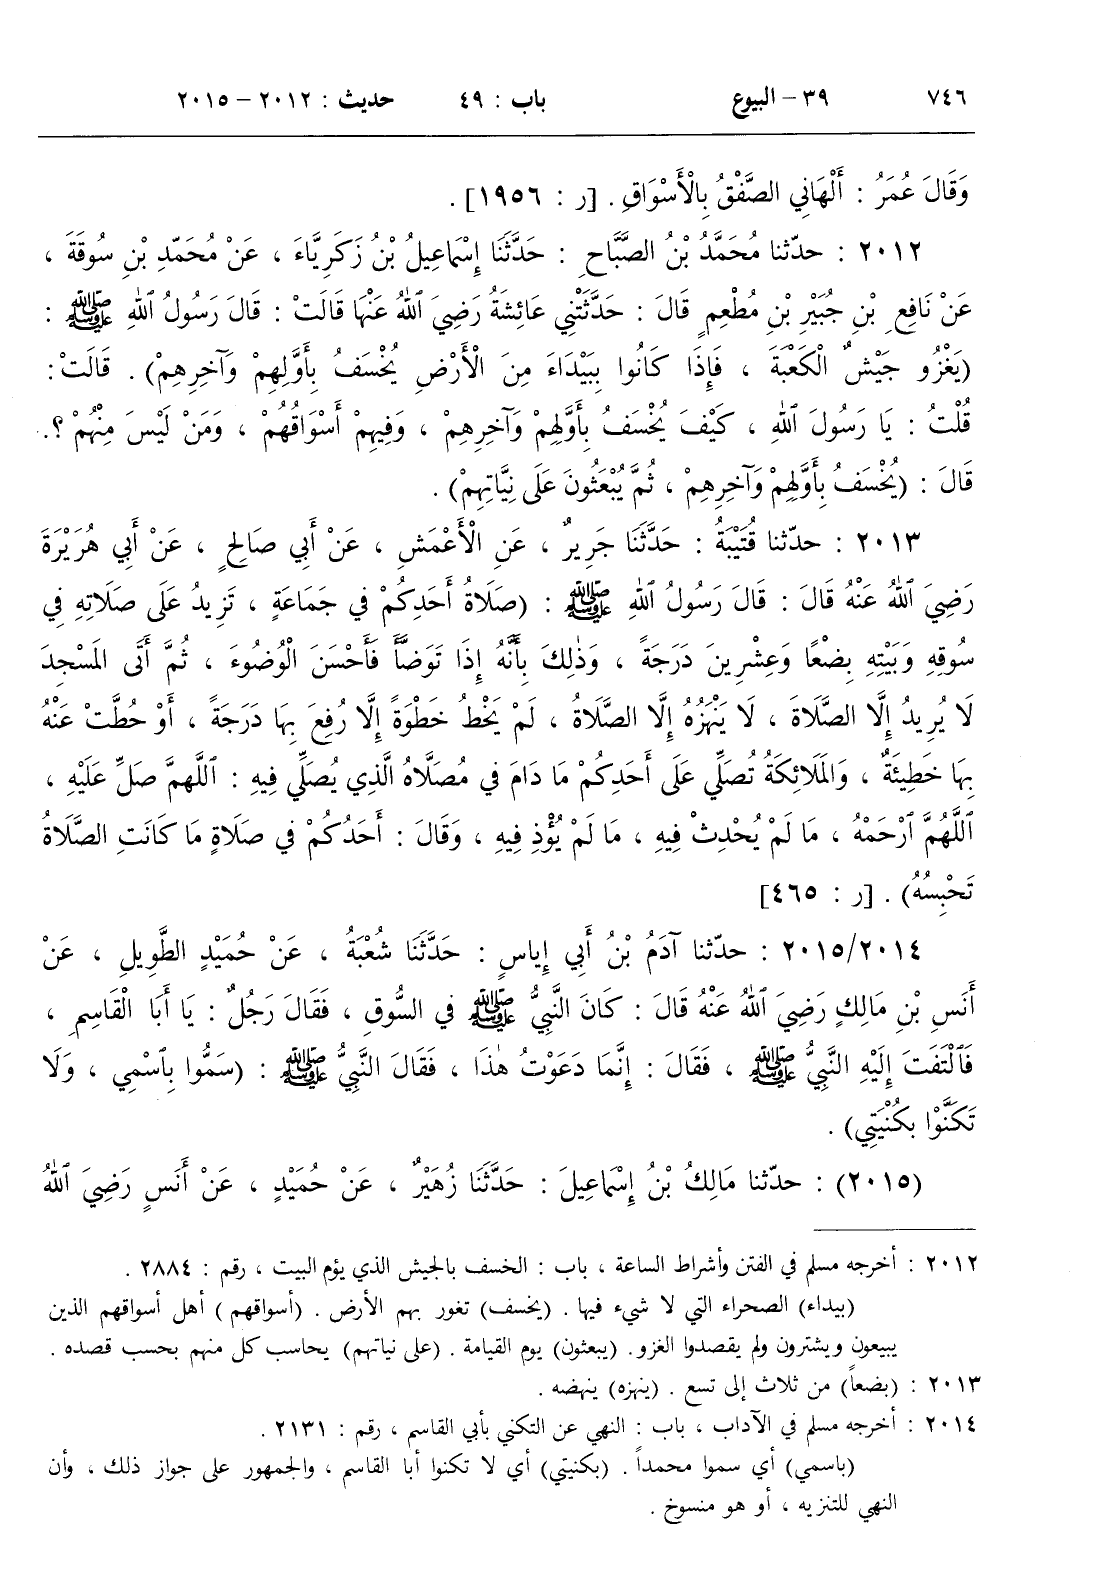 ٧٤٦ ٣٩ – البيوع باب : ٤٩ حديث : ٢٠١٢ – ٢٠١٥
وَقَالَ عُمَرُ : أَلْهَانِي الصَّفْقُ بِالْأَسْوَاقِ . [ر : ١٩٥٦] .
٢٠١٢ : حدّثنا مُحَمَّدُ بْنُ الصَّبَّاحِ : حَدَّثَنَا إِسْمَاعِيلُ بْنُ زَكَرِيَّاءَ ، عَنْ مُحَمّدِ بْنِ سُوقَةَ ،
عَنْ نَافِعِ بْنِ جُبَيْرِ بْنِ مُطْعِمٍ قَالَ : حَدَّثَتْنِي عَائِشَةُ رَضِيَ ٱللهُ عَنْهَا قَالَتْ : قَالَ رَسُولُ ٱللهِ ﷺ :
(يَغْزُو جَيْشٌ الْكَعْبَةَ ، فَإِذَا كَانُوا بِبَيْدَاءَ مِنَ الْأَرْضِ يُخْسَفُ بِأَوَّلِهِمْ وَآخِرِهِمْ) . قَالَتْ :
قُلْتُ : يَا رَسُولَ ٱللهِ ، كَيْفَ يُخْسَفُ بِأَوَّلِهِمْ وَآخِرِهِمْ ، وَفِيهِمْ أَسْوَاقُهُمْ ، وَمَنْ لَيْسَ مِنْهُمْ ؟.
قَالَ : (يُخْسَفُ بِأَوَّلِهِمْ وَآخِرِهِمْ ، ثُمَّ يُبْعَثُونَ عَلَى نِيَّاتِهِمْ) .
٢٠١٣ : حدّثنا قُتَيْبَةُ : حَدَّثَنَا جَرِيرٌ ، عَنِ الْأَعْمَشِ ، عَنْ أَبِي صَالِحٍ ، عَنْ أَبِي هُرَيْرَةَ
رَضِيَ ٱللهُ عَنْهُ قَالَ : قَالَ رَسُولُ ٱللهِ ﷺ : (صَلَاةُ أَحَدِكُمْ فِي جَمَاعَةٍ ، تَزِيدُ عَلَى صَلَاتِهِ فِي
سُوقِهِ وَبَيْتِهِ بِضْعًا وَعِشْرِينَ دَرَجَةً ، وَذٰلِكَ بِأَنَّهُ إِذَا تَوَضَّأَ فَأَحْسَنَ الْوُضُوءَ ، ثُمَّ أَتَى المَسْجِدَ
لَا يُرِيدُ إِلَّا الصَّلَاةَ ، لَا يَنْهَزُهُ إِلَّا الصَّلَاةُ ، لَمْ يَخْطُ خَطْوَةً إِلَّا رُفِعَ بِهَا دَرَجَةً ، أَوْ حُطَّتْ عَنْهُ
بِهَا خَطِيئَةٌ ، وَالمَلَائِكَةُ تُصَلِّي عَلَى أَحَدِكُمْ مَا دَامَ فِي مُصَلَّاهُ الَّذِي يُصَلِّي فِيهِ : ٱللَّهمَّ صَلِّ عَلَيْهِ ،
ٱللَّهُمَّ ٱرْحَمْهُ ، مَا لَمْ يُحْدِثْ فِيهِ ، مَا لَمْ يُؤْذِ فِيهِ ، وَقَالَ : أَحَدُكُمْ فِي صَلَاةٍ مَا كَانَتِ الصَّلَاةُ
تَحْبِسُهُ) . [ر : ٤٦٥]
٢٠١٥/٢٠١٤ : حدّثنا آدَمُ بْنُ أَبِي إِيَاسٍ : حَدَّثَنَا شُعْبَةُ ، عَنْ حُمَيْدٍ الطَّوِيلِ ، عَنْ
أَنَسِ بْنِ مَالِكٍ رَضِيَ ٱللهُ عَنْهُ قَالَ : كَانَ النَّبِيُّ ﷺ فِي السُّوقِ ، فَقَالَ رَجُلٌ : يَا أَبَا الْقَاسِمِ ،
فَٱلْتَفَتَ إِلَيْهِ النَّبِيُّ ﷺ ، فَقَالَ : إِنَّمَا دَعَوْتُ هٰذَا ، فَقَالَ النَّبِيُّ ﷺ : (سَمُّوا بِٱسْمِي ، وَلَا
تَكَنَّوْا بِكُنْيَتِي) .
(٢٠١٥) : حدّثنا مَالِكُ بْنُ إِسْمَاعِيلَ : حَدَّثَنَا زُهَيْرٌ ، عَنْ حُمَيْدٍ ، عَنْ أَنَسٍ رَضِيَ ٱللهُ
٢٠١٢ : أخرجه مسلم في الفتن وأشراط الساعة ، باب : الخسف بالجيش الذي يؤم البيت ، رقم : ٢٨٨٤ .
(بيداء) الصحراء التي لا شيء فيها . (يخسف) تغور بهم الأرض . (أسواقهم ) أهل أسواقهم الذين
يبيعون ويشترون ولم يقصدوا الغزو . (يبعثون) يوم القيامة . (على نياتهم) يحاسب كل منهم بحسب قصده .
٢٠١٣ : (بضعاً) من ثلاث إلى تسع . (ينهزه) ينهضه .
٢٠١٤ : أخرجه مسلم في الآداب ، باب : النهي عن التكني بأبي القاسم ، رقم : ٢١٣١ .
(باسمي) أي سموا محمداً . (بكنيتي) أي لا تكنوا أبا القاسم ، والجمهور على جواز ذلك ، وأن
النهي للتنزيه ، أو هو منسوخ .